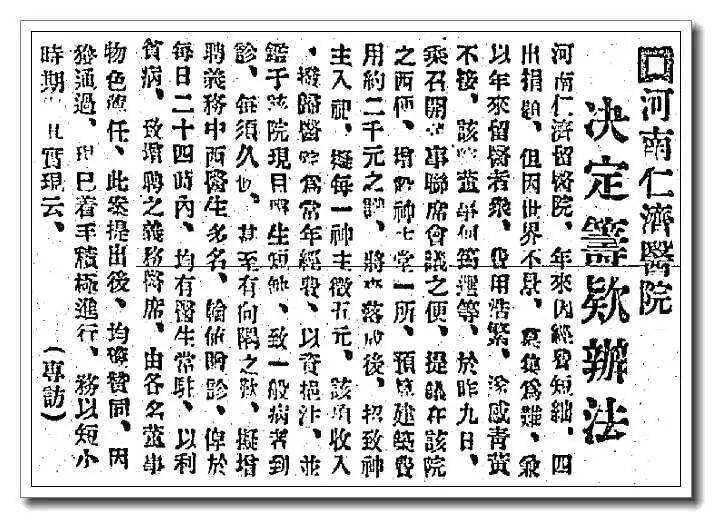 口河南仁濟醫院
决定籌欵辦法
河南仁濟留醫院、年來因經費短絀、四
出捐題、但因世界不景、募集爲難、兼
以年來留醫者衆、費用浩繁、深感靑黃
不接、該院董等籌擋等、於昨九日、
乘召開董事聯席會議之便、提議在該院
之西便、增設神主堂一所、預算建築費
用約二千元之譜、將來落成後、招致神
主入祀、擬每一神主徵五元、該項收入
、撥歸醫院爲常年經費、以資挹注、並
鑑于該院現目醫生短缺、致一般病者到
診、每須久候、甚至有向隅之歎、擬增
聘義務中西醫生多名、輪値贈診、俾於
每日二十四時內、均有醫生常駐、以利
貧病、致增聘之義務醫席、由各名董事
物色薦任、此案提出後、均獲贊同、因
發通過、現已着手積極進行、務以短小
時期 實現云、
（專訪）